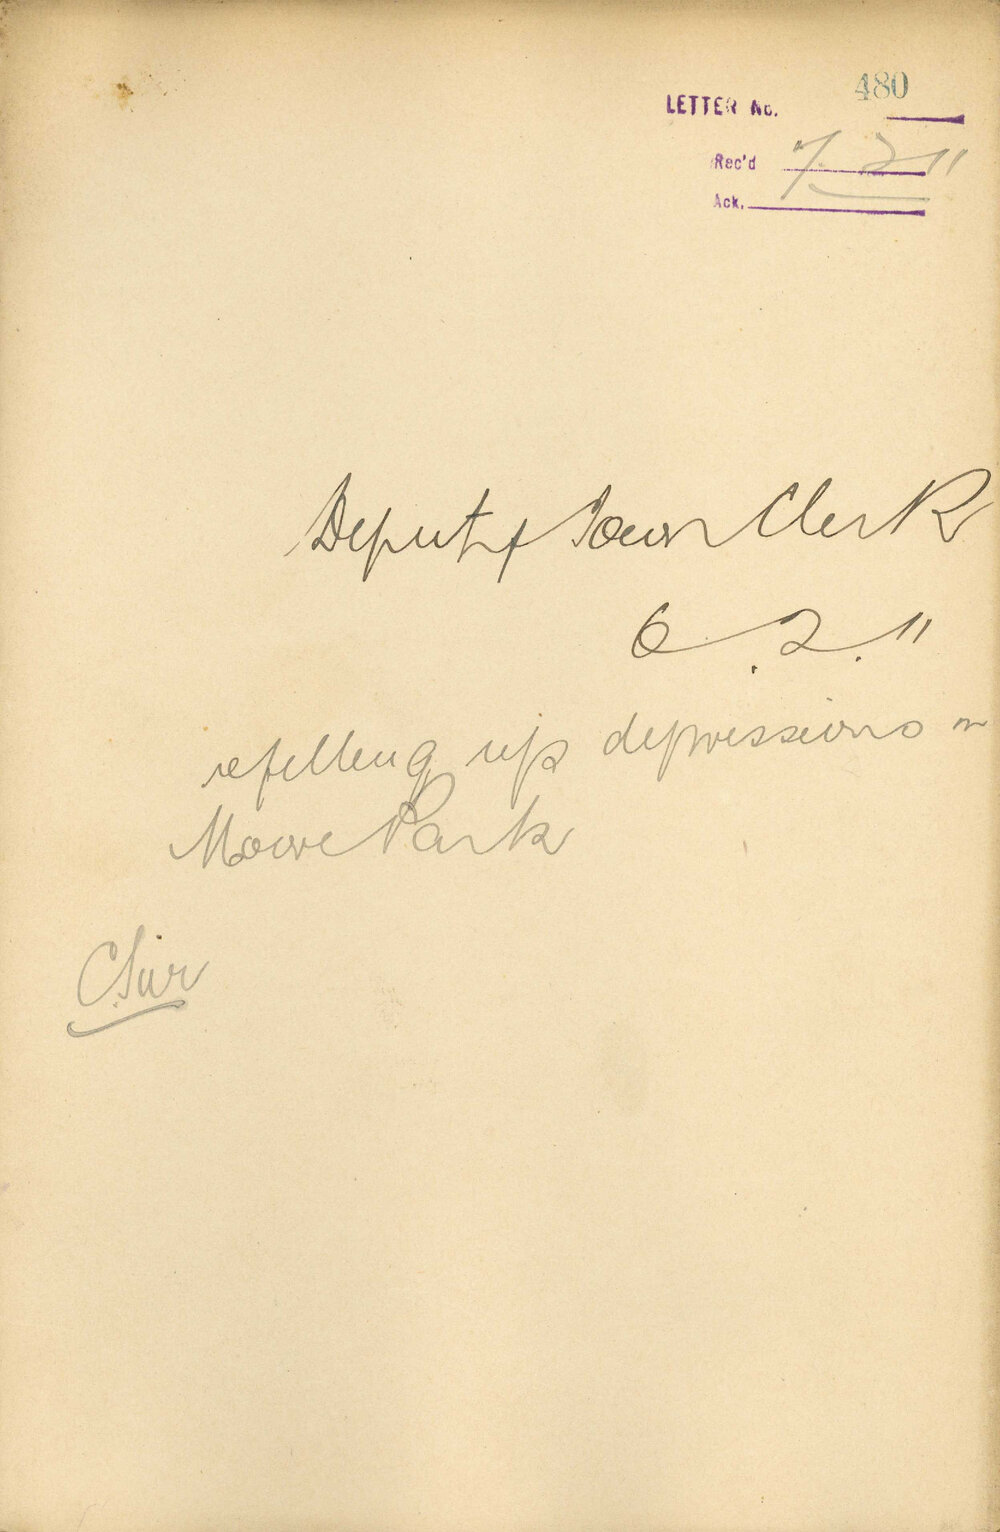 480
LETTER No.
Rec'd 7.2.11
Ack.
Deputy Town Clerk
6.2.11
re filling up depressions in
Moore Park
C. Sur